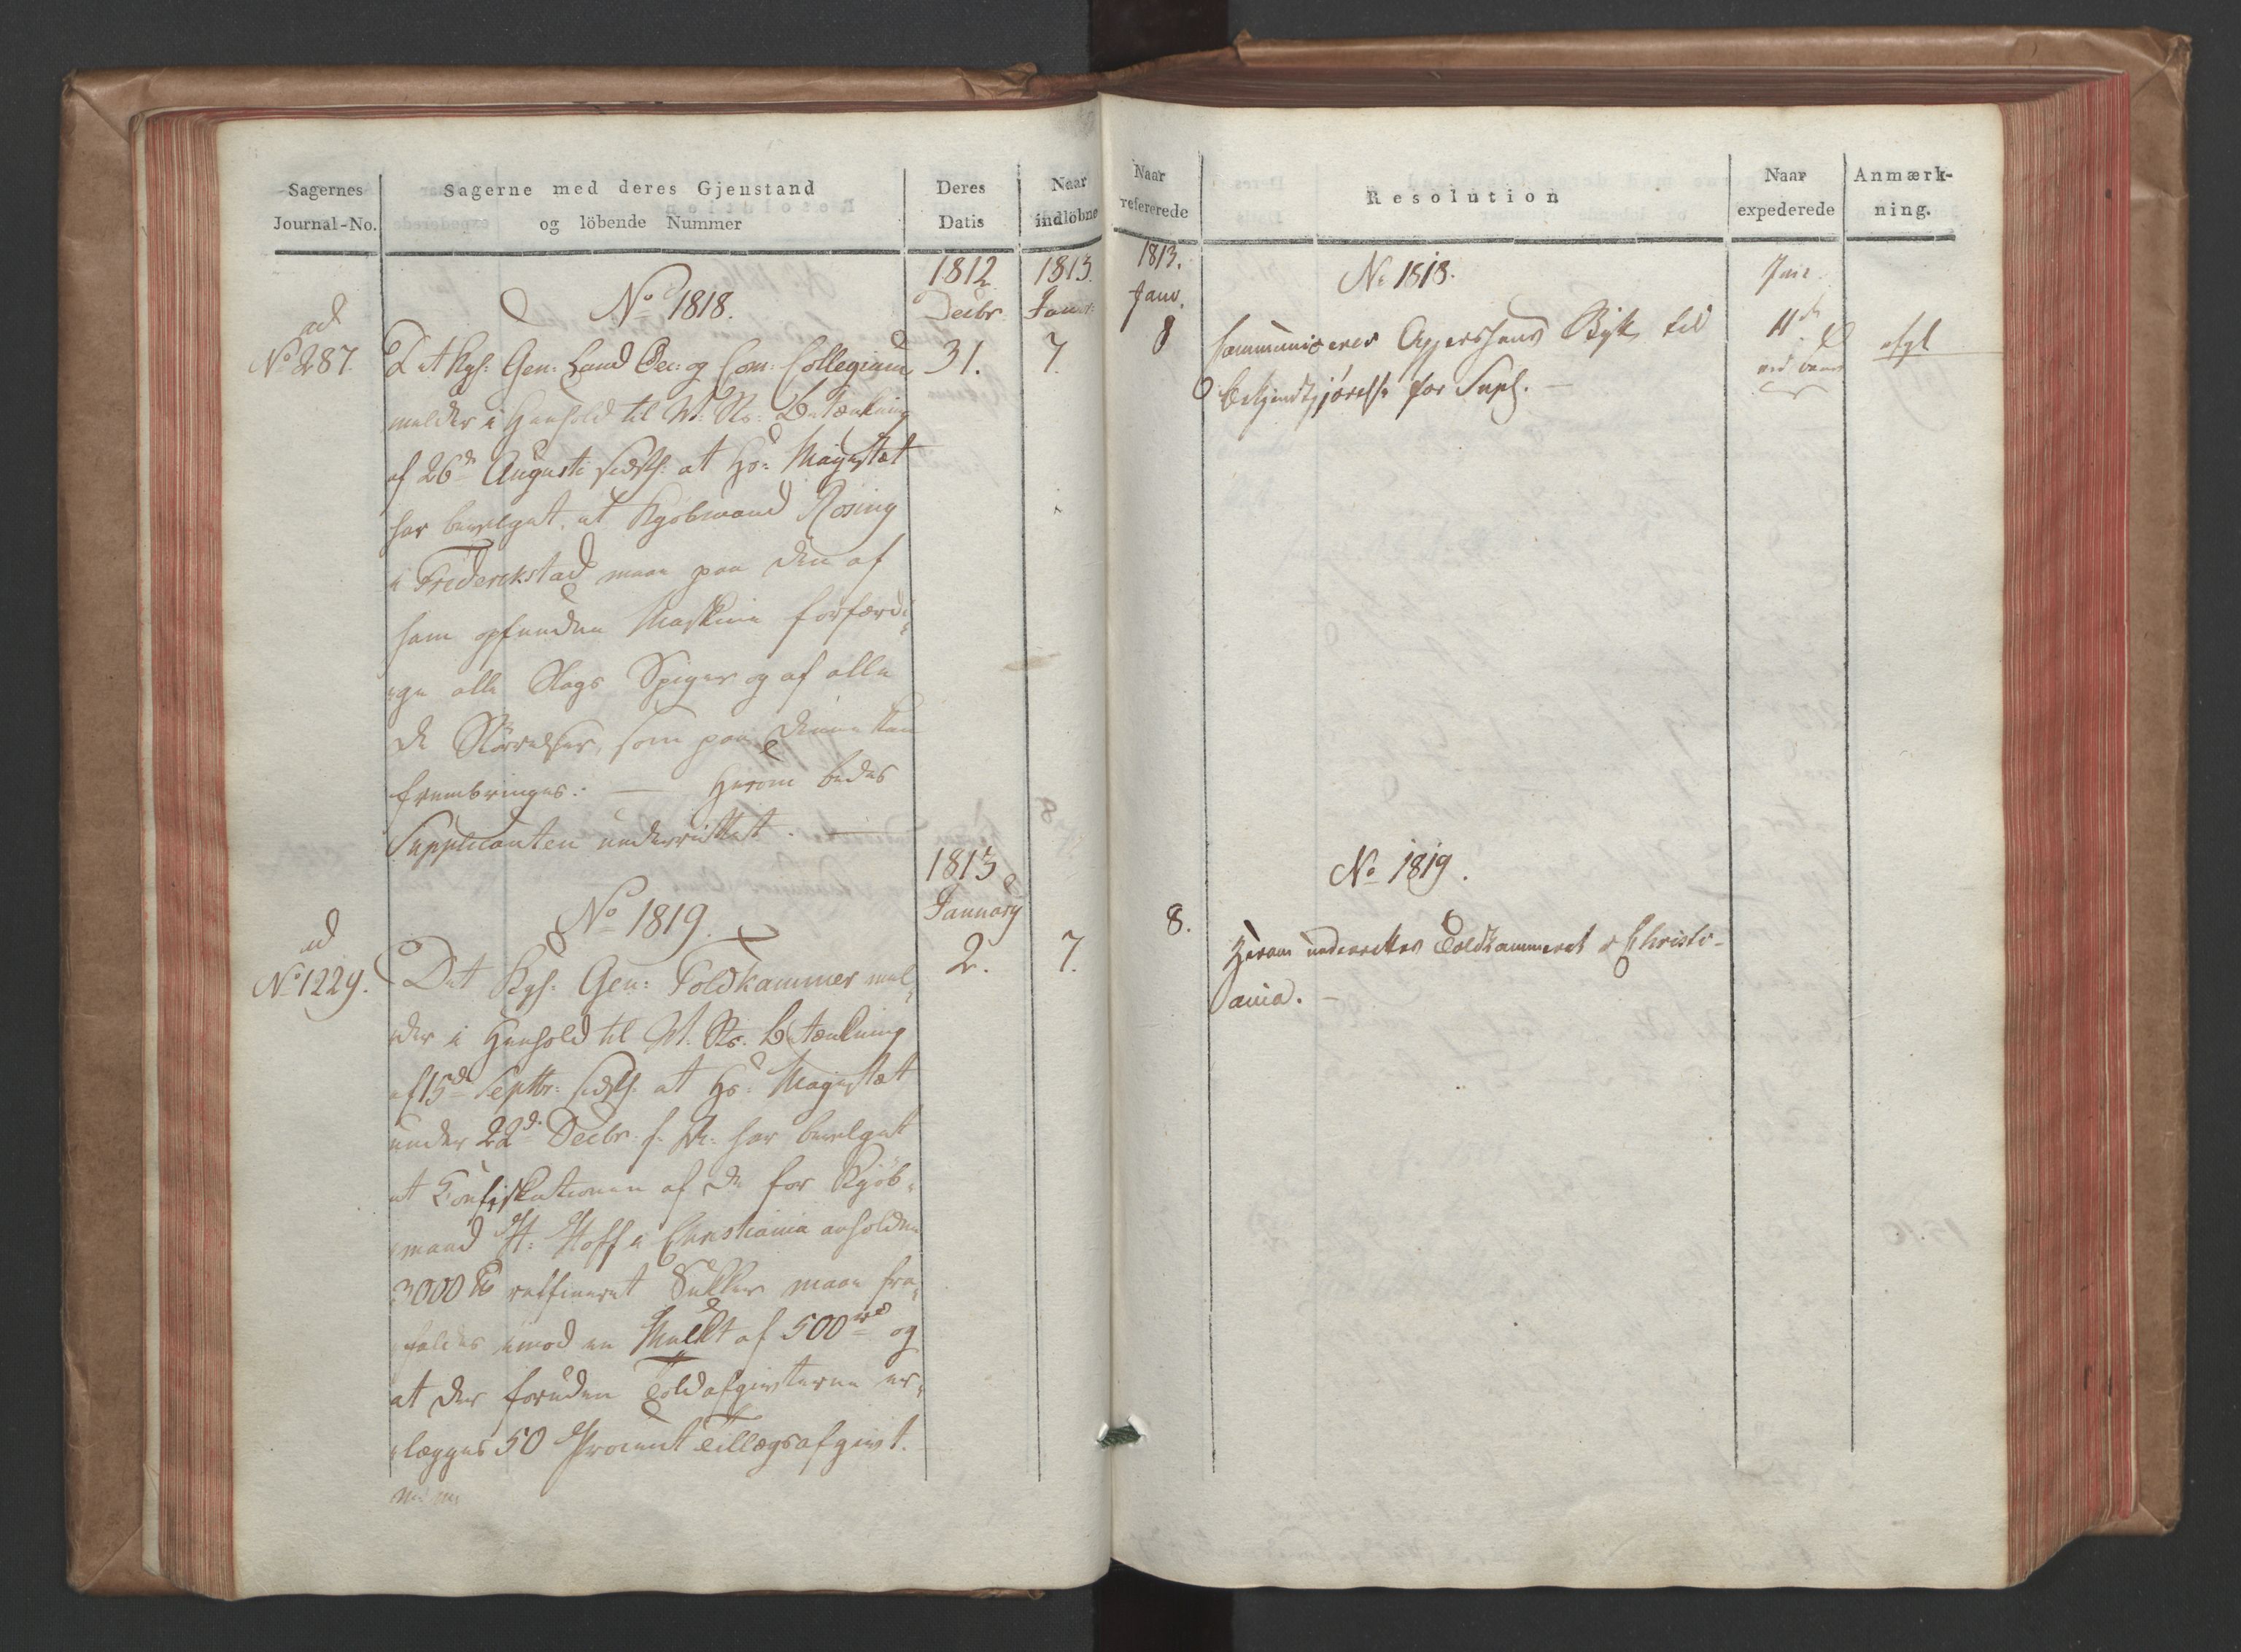 Sagernes
Journal-No.
Sagerne med deres Gjenstand
og löbende Nummer
Deres
Datis
Naar
indlöbne
1812
Decbr
31.
1813.
Januar
7.
No 1818.
ad
No 287.
Det Kgl: Gen: Land Oec: og Com: Collegium
melder i Henhold til
Betænkning
af 26de Augusti sidstl: at Hs: Majestæt
har bevilget, at Kjøbmand Rosing
i Friderikstad maae paa den af
ham opfundne Maskine forfærdi-
ge alle Slags Spiger og af alle
de Størrelser, som paa denne kan
frembringes. — Herom bedes
Supplicanten underrettet. —
1813
January
No 1819.
ad
No 1229.
2.
7.
Det Kgl: Gen: Toldkammer mel-
der i Henhold til
Betænkning
af 15de Septbr: sidstl: at Hs: Majestæt
under 22de Decbr: f. A: har bevilget
at Confiskationen af de for Kjøb-
mand H: Hoff i Christiania anholdne
3000 ℔ raffineret Sukker maae fra-
faldes imod en Mulkt af 500 rd og
at der foruden Toldafgivterne er-
lægges 50 Procent Tillægsafgivt.
m: m:
Naar
refererede
Resolution
Naar
expederede
Anmærk-
ning.
1813.
Janv.
8
No 1818.
11te
Communiceres
til
Bekjendtgjørelse for Supl. —
afgl
No 1819.
8.
Herom underrettes Toldkammeret i Christi-
ania. —